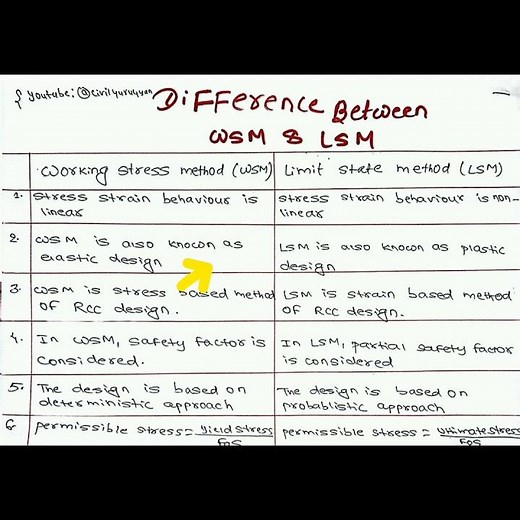 { Youtube: @civilguruyyan
DiFFerence Between
WSM & LSM
Working stress method (WSM)
Limit state method (LSM)
1. stress strain behaviour is
linear
stress strain behaviour is non-
linear
2. WSM is also known as
elastic design
LSM is also known as plastic
design
3. WSM is stress based method
OF RCC design.
LSM is strain based method
OF RCC design.
4. In WSM, safety factor is
considered.
In LSM, partial safety factor
is considered
5. The design is based on
deterministic approach
The design is based on
probablistic approach
6 permissible stress = yield stress
FOS
permissible stress = ultimate stress
FOS